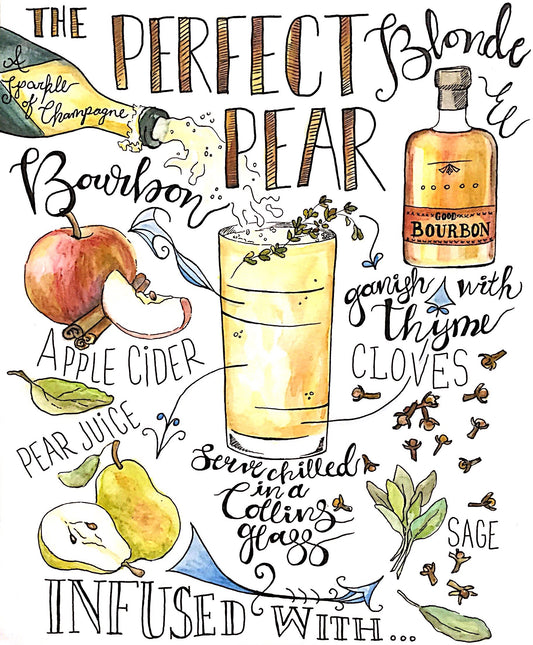 THE PERFECT
PEAR
Blonde
A
Sparkle
of Champagne
Bourbon
GOOD
BOURBON
ganish with
thyme
APPLE CIDER
CLOVES
PEAR JUICE
Serve chilled
in a
Collins
glass
SAGE
INFUSED WITH...